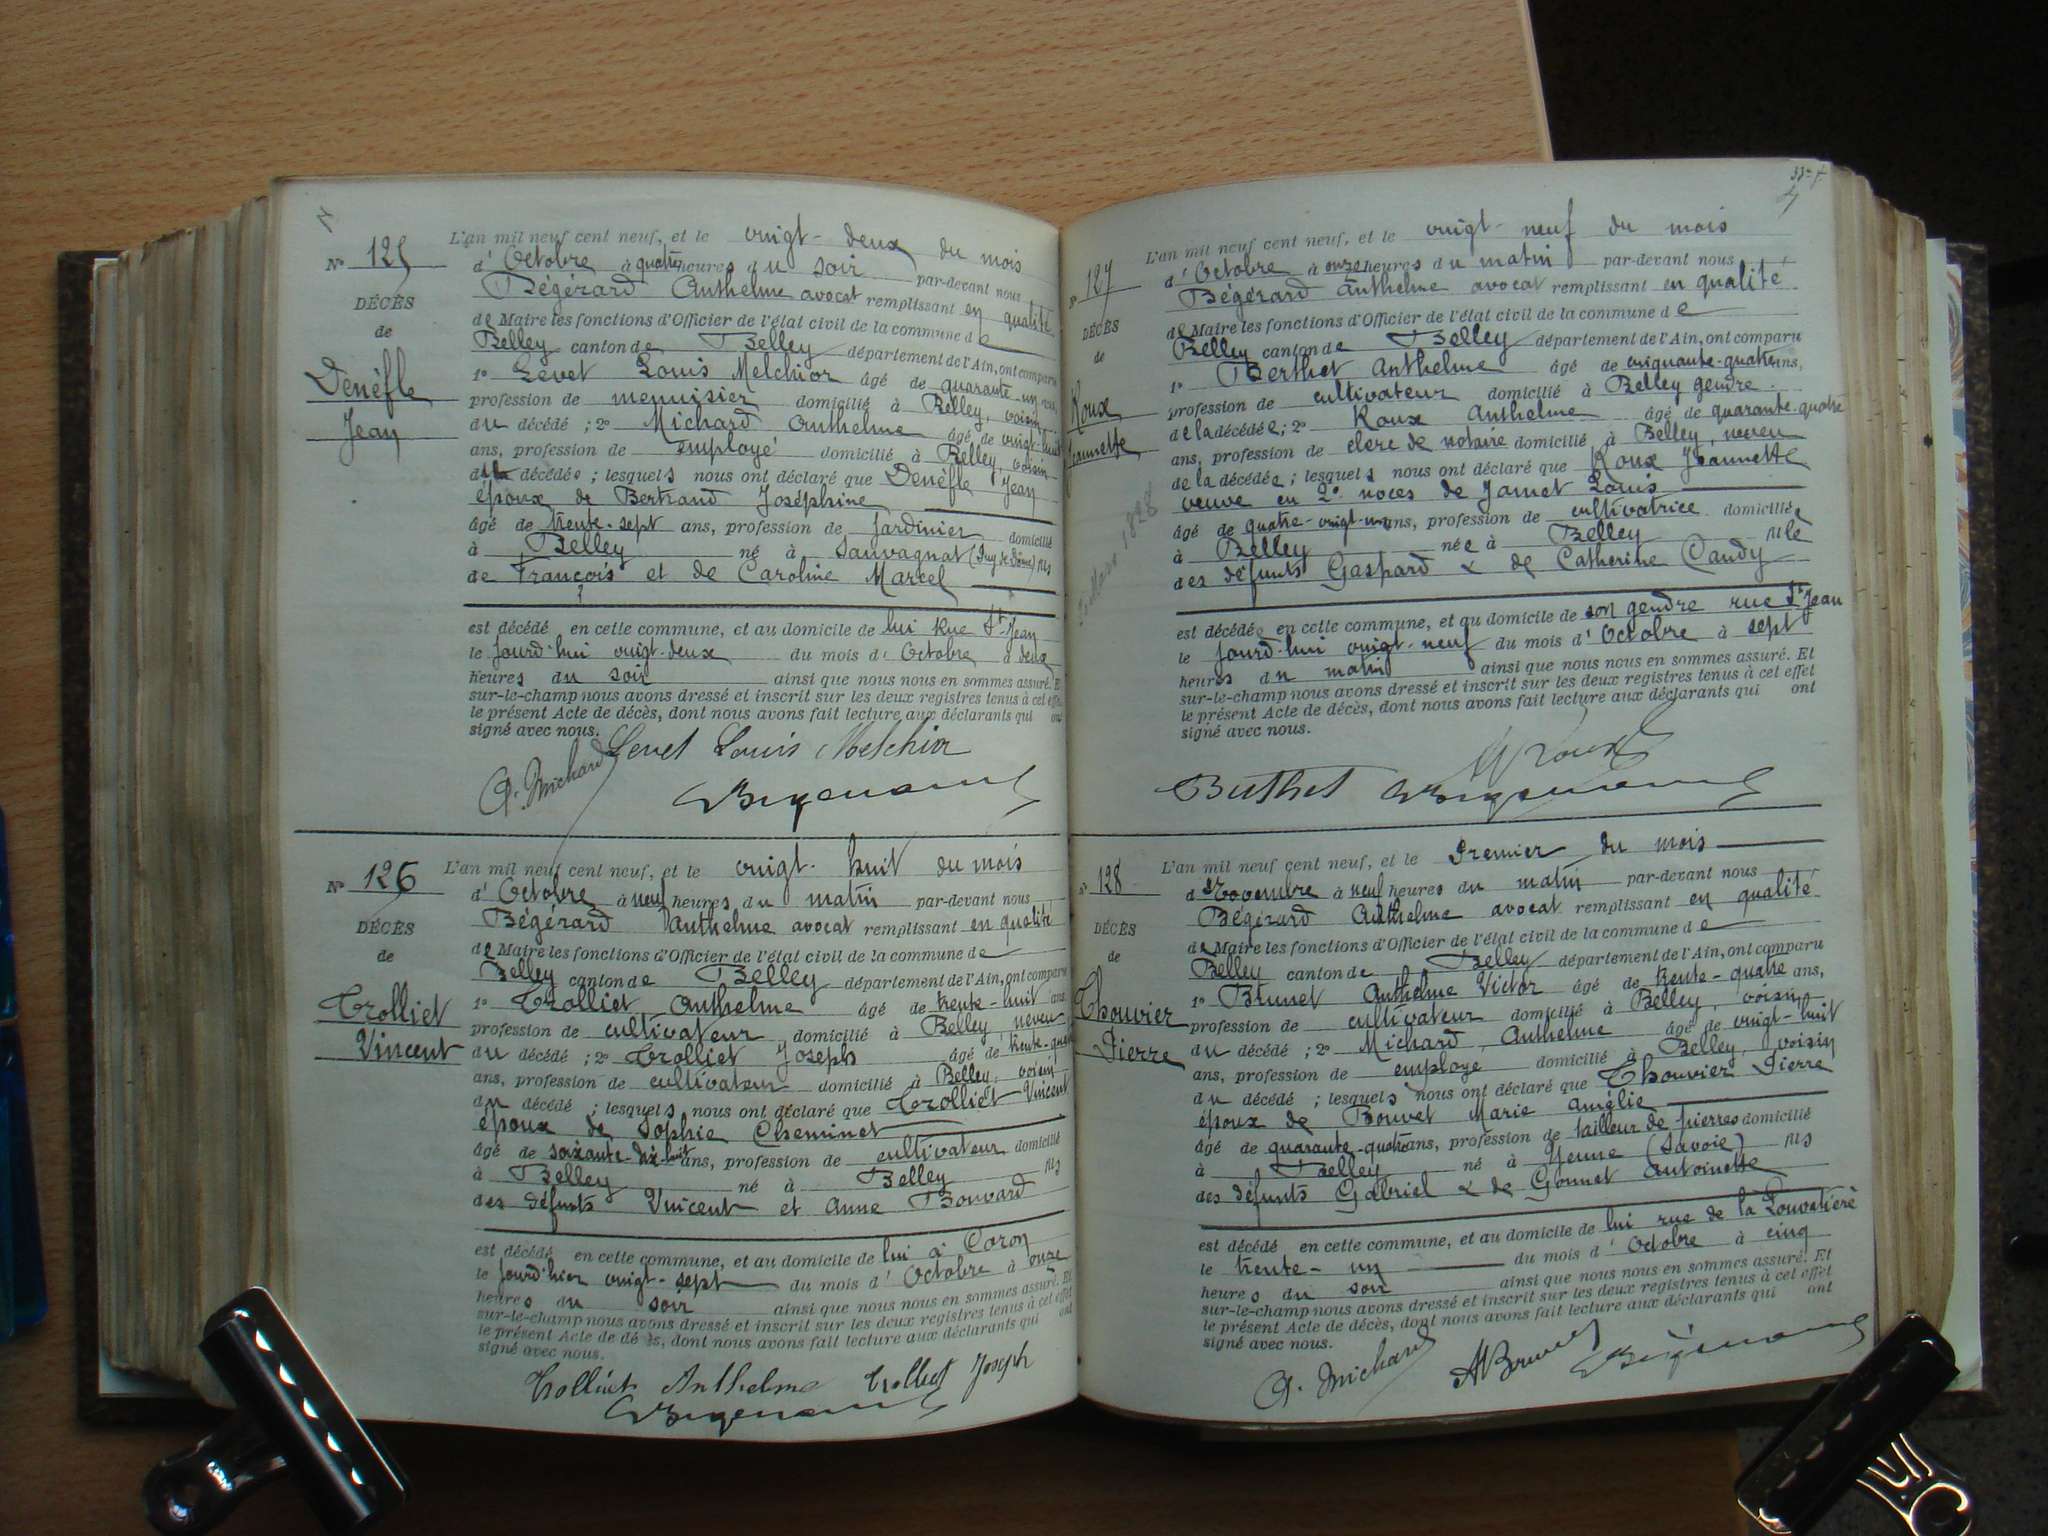 N° 125
DÉCÈS
de
Denèfle
Jean
L'an mil neuf cent neuf, et le vingt-deux du mois
d'Octobre à quatre heures du soir par-devant nous
Bégérard Anthelme avocat remplissant en qualité
de Maire les fonctions d'Officier de l'état civil de la commune de
Belley canton de Belley département de l'Ain, ont comparu
1° Levet Louis Melchior âgé de quarante-un ans,
profession de menuisier domicilié à Belley, voisin
du décédé ; 2° Michard Anthelme âgé de vingt-huit
ans, profession de employé domicilié à Belley, voisin
du décédé ; lesquels nous ont déclaré que Denèfle Jean
époux de Bertrand Joséphine
âgé de trente-sept ans, profession de jardinier domicilié
à Belley né à Sauvagnat (Puy de Dôme) fils
de François et de Caroline Marcel
est décédé en cette commune, et au domicile de lui Rue St Jean
le jourd'hui vingt-deux du mois d'Octobre à deux
heures du soir ainsi que nous nous en sommes assuré. Et
sur-le-champ nous avons dressé et inscrit sur les deux registres tenus à cet effet
le présent Acte de décès, dont nous avons fait lecture aux déclarants qui ont
signé avec nous.
Levet Louis Melchior
A. Michard
N° 126
DÉCÈS
de
Trolliet
Vincent
L'an mil neuf cent neuf, et le vingt-huit du mois
d'Octobre à neuf heures du matin par-devant nous
Bégérard Anthelme avocat remplissant en qualité
de Maire les fonctions d'Officier de l'état civil de la commune de
Belley canton de Belley département de l'Ain, ont comparu
1° Trolliet Anthelme âgé de trente-huit ans
profession de cultivateur domicilié à Belley, neveu
du décédé ; 2° Trolliet Joseph âgé de trente-quatre
ans, profession de cultivateur domicilié à Belley, voisin
du décédé ; lesquels nous ont déclaré que Trolliet Vincent
époux de Sophie Cheminet
âgé de soixante-dix-huit ans, profession de cultivateur domicilié
à Belley né à Belley fils
des défunts Vincent et Anne Bouvard
est décédé en cette commune, et au domicile de lui à Coron
le jourd'hier vingt-sept du mois d'Octobre à onze
heures du soir ainsi que nous nous en sommes assuré. Et
sur-le-champ nous avons dressé et inscrit sur les deux registres tenus à cet effet
le présent Acte de décès, dont nous avons fait lecture aux déclarants qui ont
signé avec nous.
Trolliet Anthelme Trolliet Joseph
N° 127
DÉCÈS
de
Roux
Jeannette
L'an mil neuf cent neuf, et le vingt-neuf du mois
d'Octobre à onze heures du matin par-devant nous
Bégérard Anthelme avocat remplissant en qualité
de Maire les fonctions d'Officier de l'état civil de la commune de
Belley canton de Belley département de l'Ain, ont comparu
1° Berthet Anthelme âgé de cinquante-quatre ans,
profession de cultivateur domicilié à Belley gendre
de la décédée ; 2° Roux Anthelme âgé de quarante-quatre
ans, profession de clerc de notaire domicilié à Belley, neveu
de la décédée ; lesquels nous ont déclaré que Roux Jeannette
veuve en 2es noces de Jamet Louis
âgé de quatre-vingt-un ans, profession de cultivatrice domiciliée
à Belley née à Belley fille
des défunts Gaspard & de Catherine Caudy
est décédée en cette commune, et au domicile de son gendre rue St Jean
le jourd'hui vingt-neuf du mois d'Octobre à sept
heures du matin ainsi que nous nous en sommes assuré. Et
sur-le-champ nous avons dressé et inscrit sur les deux registres tenus à cet effet
le présent Acte de décès, dont nous avons fait lecture aux déclarants qui ont
signé avec nous.
A Roux
Berthet
N° 128
DÉCÈS
de
Thouvier
Pierre
L'an mil neuf cent neuf, et le Premier du mois
de Novembre à neuf heures du matin par-devant nous
Bégérard Anthelme avocat remplissant en qualité
de Maire les fonctions d'Officier de l'état civil de la commune de
Belley canton de Belley département de l'Ain, ont comparu
1° Brunet Anthelme Victor âgé de trente-quatre ans,
profession de cultivateur domicilié à Belley, voisin
du décédé ; 2° Michard Anthelme âgé de vingt-huit
ans, profession de employé domicilié à Belley, voisin
du décédé ; lesquels nous ont déclaré que Thouvier Pierre
époux de Bouvet Marie Amélie
âgé de quarante-quatre ans, profession de tailleur de pierres domicilié
à Belley né à Yenne (Savoie) fils
des défunts Gabriel & de Gonnet Antoinette
est décédé en cette commune, et au domicile de lui rue de la Louvatière
le trente-un du mois d'Octobre à cinq
heures du soir ainsi que nous nous en sommes assuré. Et
sur-le-champ nous avons dressé et inscrit sur les deux registres tenus à cet effet
le présent Acte de décès, dont nous avons fait lecture aux déclarants qui ont
signé avec nous.
A. Michard